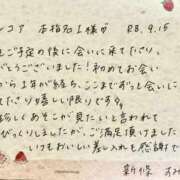 ンコア 本指名1様が R8.9.15
ご予定の後に会いに来て下さり、
がとうございました!初めてお会い
から1年が経ち、ここまでずっと会いに
て下さり嬉しい限りです。
珍しくあそこが見たいと言われて
びっくりしましたが、ご満足頂けました
いつもおいしい差し入れも感謝です
新條 すみ